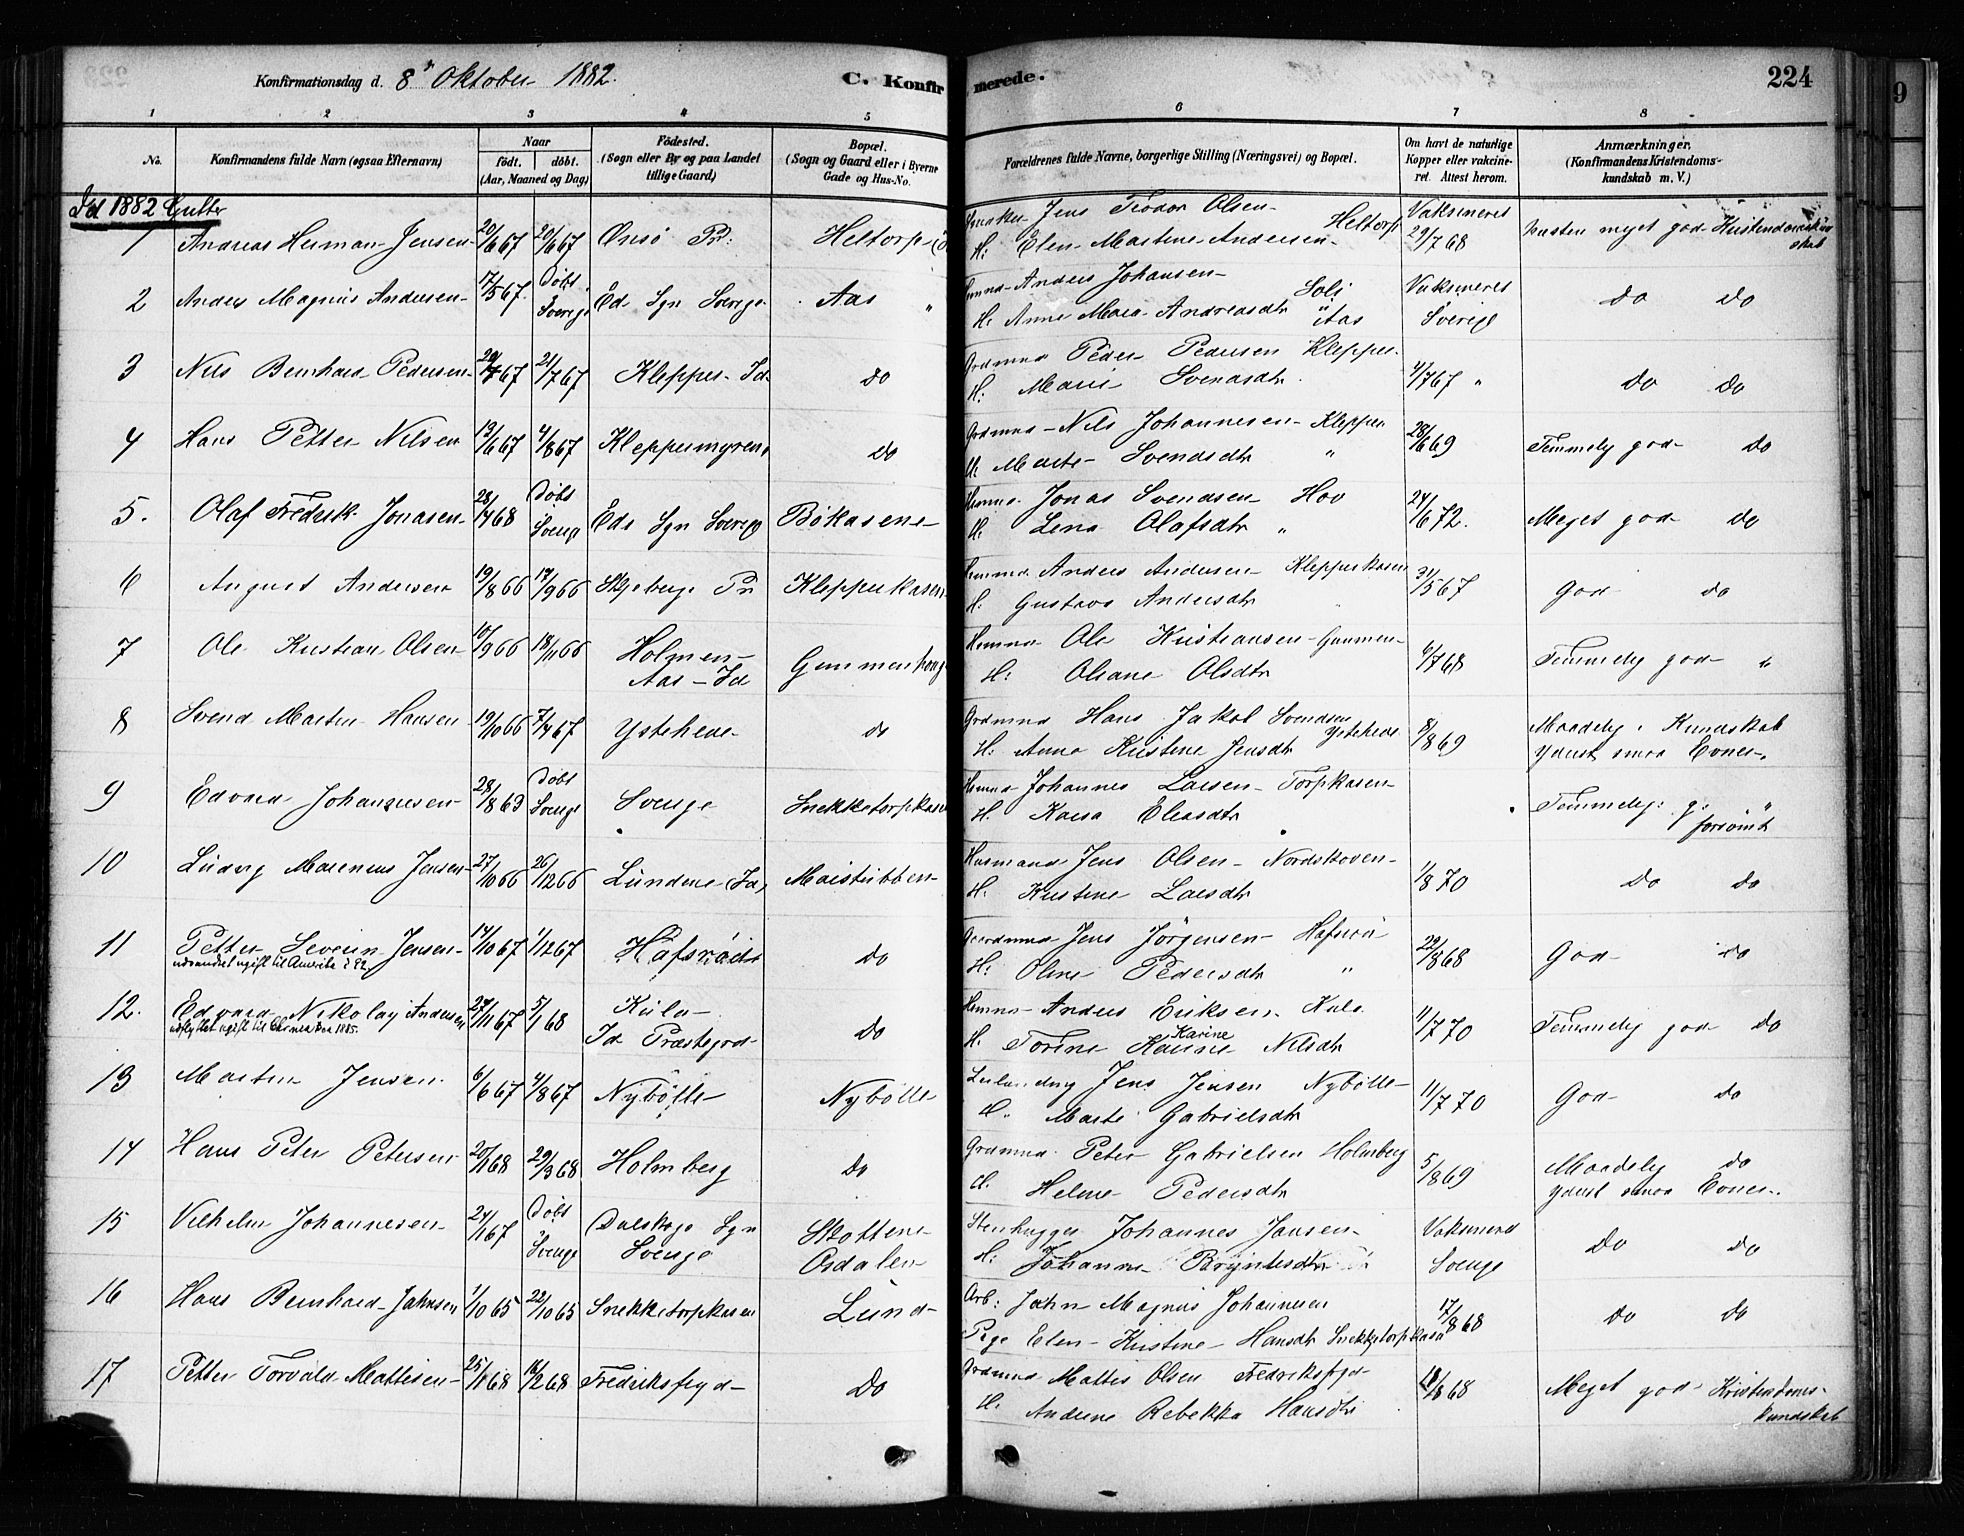 Konfirmationsdag d. 8de Oktober 1882.
C. Konfirmerede.
224
9
1 2 3 4 5 6 7 8
No.
Konfirmandens fulde Navn (ogsaa Efternavn)
Naar
födt. döbt.
(Aar, Maaned og Dag)
Födested.
(Sogn eller By og paa Landet
tillige Gaard)
Bopæl.
(Sogn og Gaard eller i Byerne
Gade og Hus-No.
Forældrenes fulde Navne, borgerlige Stilling (Næringsvei) og Bopæl.
Om havt de naturlige
Kopper eller vakcine-
ret. Attest herom.
Anmærkninger.
(Konfirmandens Kristendoms-
kundskab m. V.)
Id 1882 Gutter
1 Andreas Herman Jensen 20/6 67 20/6 67 Onsö Pr: Heltorp
Jens Teodor Olsen Heltorp
H: Elen Martine Andersen
Vaksineret 29/7 68
Næsten meget god Kristendomskundskab
2 Anders Magnus Andersen 17/5 67 Döbt Sverige Ed Sgn Sverige Aas "
Anders Johansen
H. Anne Maria Andreasdtr Aas
Vaksineret Sverige
Do Do
3 Nils Bernhard Pedersen 21/7 67 Klepper Id Do
Grdmnd Peder Pedersen Klepper
H: Marie Svendsdtr
Do Do
4 Hans Petter Nilsen 13/6 67 4/8 67 Kleppermyren Do
Grdmnd Nils Johannesen Klepper
H. Marte Svendsdtr "
28/6 69
Temmelig god Do
5. Olaf Fredrik Jonasen 28/4 68 Döbt Sverige Eds Sgn Sverige Bökasene
Jonas Svendsen Hov
H. Lena Olafsdtr "
24/6 72.
Meget god do
6 August Andersen 19/8 66 17/9 66 Skjeberg Pr Klepperkasen
Anders Andersen Klepperkasen
H. Gustava Andersdtr
31/5 67
God do
7 Ole Kristian Olsen 10/9 66 18/11 66 Holmen
Aas - Id
Ole Kristiansen
H: Oliane Olsdtr
6/7 68
Temmelig god "
8 Svend Martin Hansen 19/10 66 7/4 67 Ystehede do
Grdmnd Hans Jakob Svendsen Ystehede
H. Anne Kristine Jensdtr
8/8 69
Maadelig Kundskab
yderst smaa Evner
9 Edvard Johannesen 28/8 63 Döbt Sverige Sverige Snekketorpkasen
Johannes Larsen Torpkasen
H. Kaisa Eliasdtr
Temmelig g: "
forsömt
10 Ludvig Marenius Jensen 27/10 66 26/12 66 Lundene (Id) Maistubben
Husmand Jens Olsen Nordskoven
H. Kristine Larsdtr
1/8 70
Do Do
11 Petter Severin Jensen 14/10 67 1/12 67 Hafsröd Do
udvandret ugift til Amerika i 92
Gaardmnd Jens Jörgensen
H: Oline Pedersdtr "
22/8 68
God do
12. Edvard Nikolay Andersen 27/11 67 5/1 68 Kula
Id Præstgrd Do
Anders Eriksen Kula
H. Torine Karine Nilsdtr
Karine
11/7 70
Temmelig god Do
13 Martin Jensen 6/6 67 4/8 67 Nybölle Nybölle
Jens Jensen Nybölle
H. Marte Gabrielsdtr
11/7 70
God Do
14 Hans Peter Petersen 20/1 68 29/3 68 Holmberg Do
Grdmnd Peter Gabrielsen Holmberg
H. Helene Pedersdtr
5/8 69
Maadelig do
yderst smaa Evner.
15 Vilhelm Johannesen Döbt Sverige Dalskogs Sgn
Sverige
Skottene
Osdalen
Stenhugger Johannes Jansen
H: Johanne Bryntesdtr
Vaksinered
Sverige
Do Do
16 Hans Bernhard Jahnsen 1/10 65 22/10 65 Snekketorpkasen Lund
Arb: Jahn Magnus Johannesen
Pige Elen Kristine Hansdtr Snekketorpkasen
17/8 68
Do Do
17 Petter Torvald Mattisen 25/1 68 16/2 68 Fredriksfryd Do
Grdmnd Mattis Olsen Fredriksfryd
H. Andrine Rebekka Hansdtr
18/8 68
Meget god Kristendoms-
kundskab